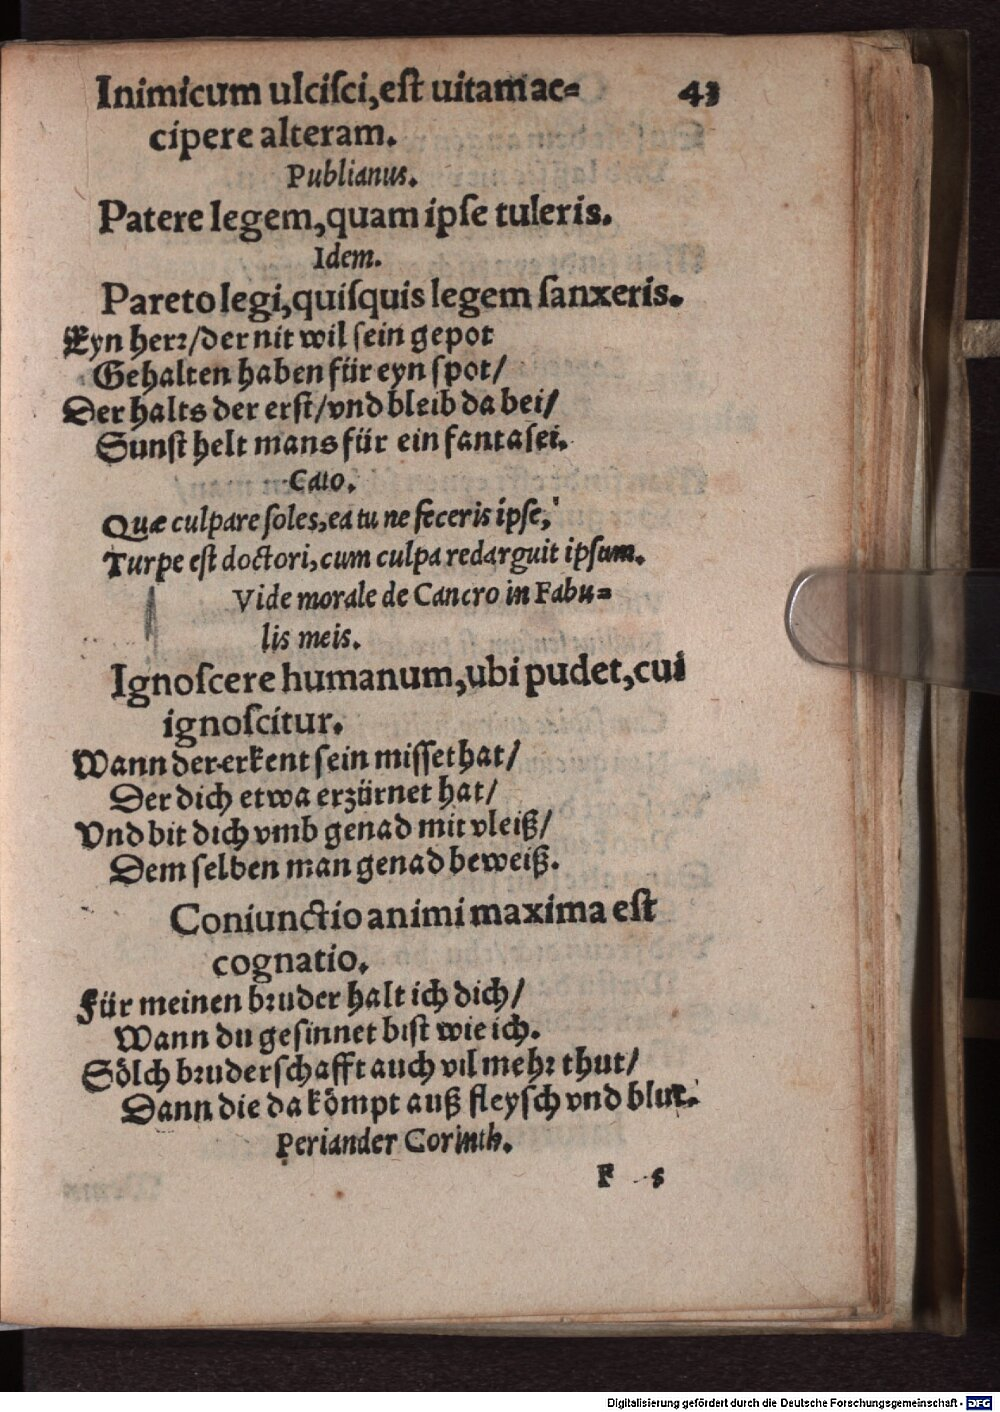 Inimicum ulciſci, eſt uitam ac= 43
cipere alteram.
Publianus.
Patere legem, quam ipſe tuleris.
Idem.
Pareto legi, quiſquis legem ſanxeris.
Eyn herꝛ/der nit wil ſein gepot
Gehalten haben für eyn ſpot/
Der halts der erſt/vnd bleib da bei/
Sunſt helt mans für ein fantaſei.
Cato.
Quæ culpare ſoles, ea tu ne feceris ipſe,
Turpe eſt doctori, cum culpa redarguit ipſum.
Vide morale de Cancro in Fabu=
lis meis.
Ignoſcere humanum, ubi pudet, cui
ignoſcitur.
Wann der erkent ſein miſſethat/
Der dich etwa erzürnet hat/
Vnd bit dich vmb genad mit vleiß/
Dem ſelben man genad beweiß.
Coniunctio animi maxima eſt
cognatio.
Für meinen bꝛuder halt ich dich/
Wann du geſinnet biſt wie ich.
Sölch bꝛuderſchafft auch vil mehꝛ thut/
Dann die da kömpt auß fleyſch vnd blut.
Periander Corinth.
F 5
Digitalisierung gefördert durch die Deutsche Forschungsgemeinschaft - DFG